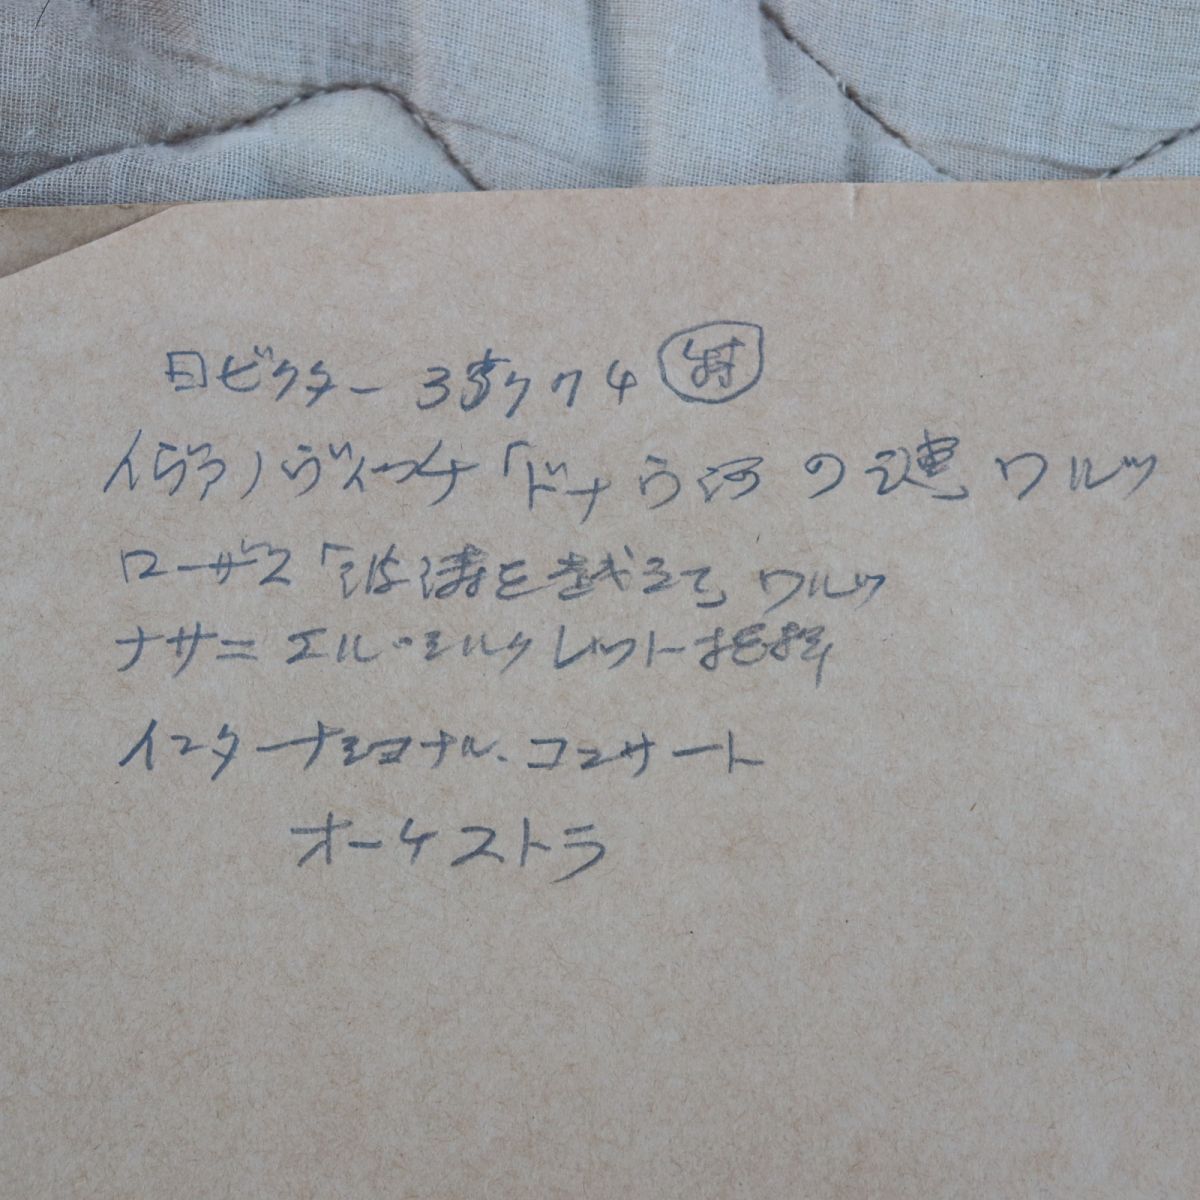 日ビクター 35774 特
イヴァノヴィッチ「ドナウ河の漣」ワルツ
ローザス「波濤を越えて」ワルツ
ナサニエル・シルクレット指揮
インターナショナル・コンサート
オーケストラ